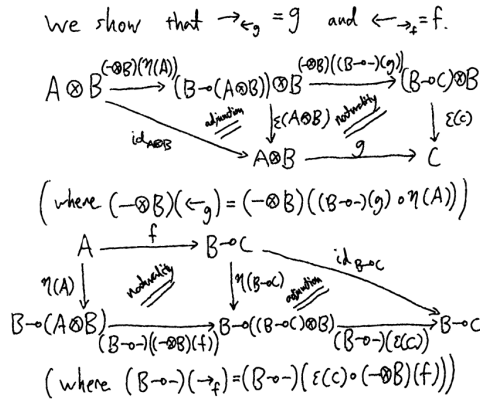 we show that →_{←_g} = g and ←_{→_f} = f.
(-⊗B)(η(A)) (-⊗B)((B⊸-)(g))
A⊗B (B⊸(A⊗B))⊗B (B⊸C)⊗B
id_{A⊗B} adjunction ε(A⊗B) naturality ε(C)
A⊗B g C
(where (-⊗B)(←_g) = (-⊗B)((B⊸-)(g)∘η(A)))
A f B⊸C id_{B⊸C}
η(A) naturality η(B⊸C) adjunction
B⊸(A⊗B) B⊸((B⊸C)⊗B) B⊸C
(B⊸-)((-⊗B)(f)) (B⊸-)(ε(C))
(where (B⊸-)(→_f) = (B⊸-)(ε(C)∘(-⊗B)(f)))